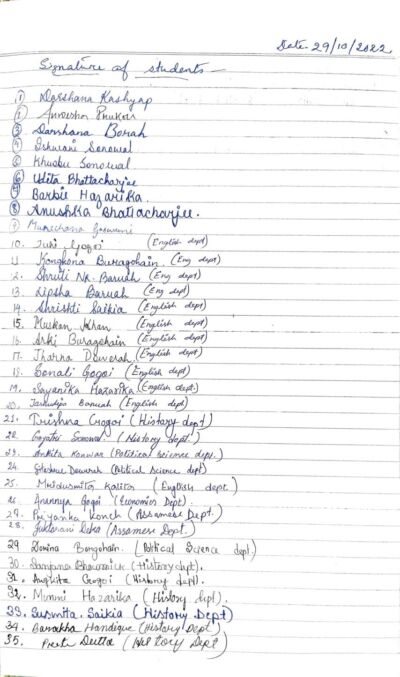 Date- 29/10/2022
Signature of students -
1) Darshana Kashyap
2) Phukan
3) Darshana Borah
4) Ishwani Sonowal
5) Khusbu Sonowal
6) Udita Bhattacharjee
7) Barbie Hazarika.
8) Anushka Bhattacharjee.
9) Goswami
10. Juri Gogoi (English dept)
11. Kongkona Buragohain. (Eng dept)
12. Shruti Nk. Baruah (Eng dept)
13. Lipsha Baruah (Eng dept)
14. Shristi Saikia (English dept)
15. Muskan Khan (English dept)
16. Arki Buragohain (English dept)
17. Jharna Dowerah (English dept)
18. Sonali Gogoi (English dept)
19. Sayanika Hazarika (English dept.)
20. Baruah (English dept)
21. Trishna Gogoi (History dept)
22. Gayatri Sonowal (History dept.)
23. Ankita Konwar (Political science dept.
24. Dowrah (Political Science dept)
25. Mridusmita Kalita (English dept.)
26. Anannya Gogoi (Economics Dept).
27. Priyanka Konch (Assamese Dept.)
28. Deka (Assamese Dept.)
29 Borgohain. (Political Science dept.)
30. Sanjana Bhowmick (History dept).
31. Gogoi (History dept).
32. Munmi Hazarika (History dept).
33. Susmita Saikia (History Dept)
34. Barakha Handique (History Dept)
35. Preeti Dutta (History Dept